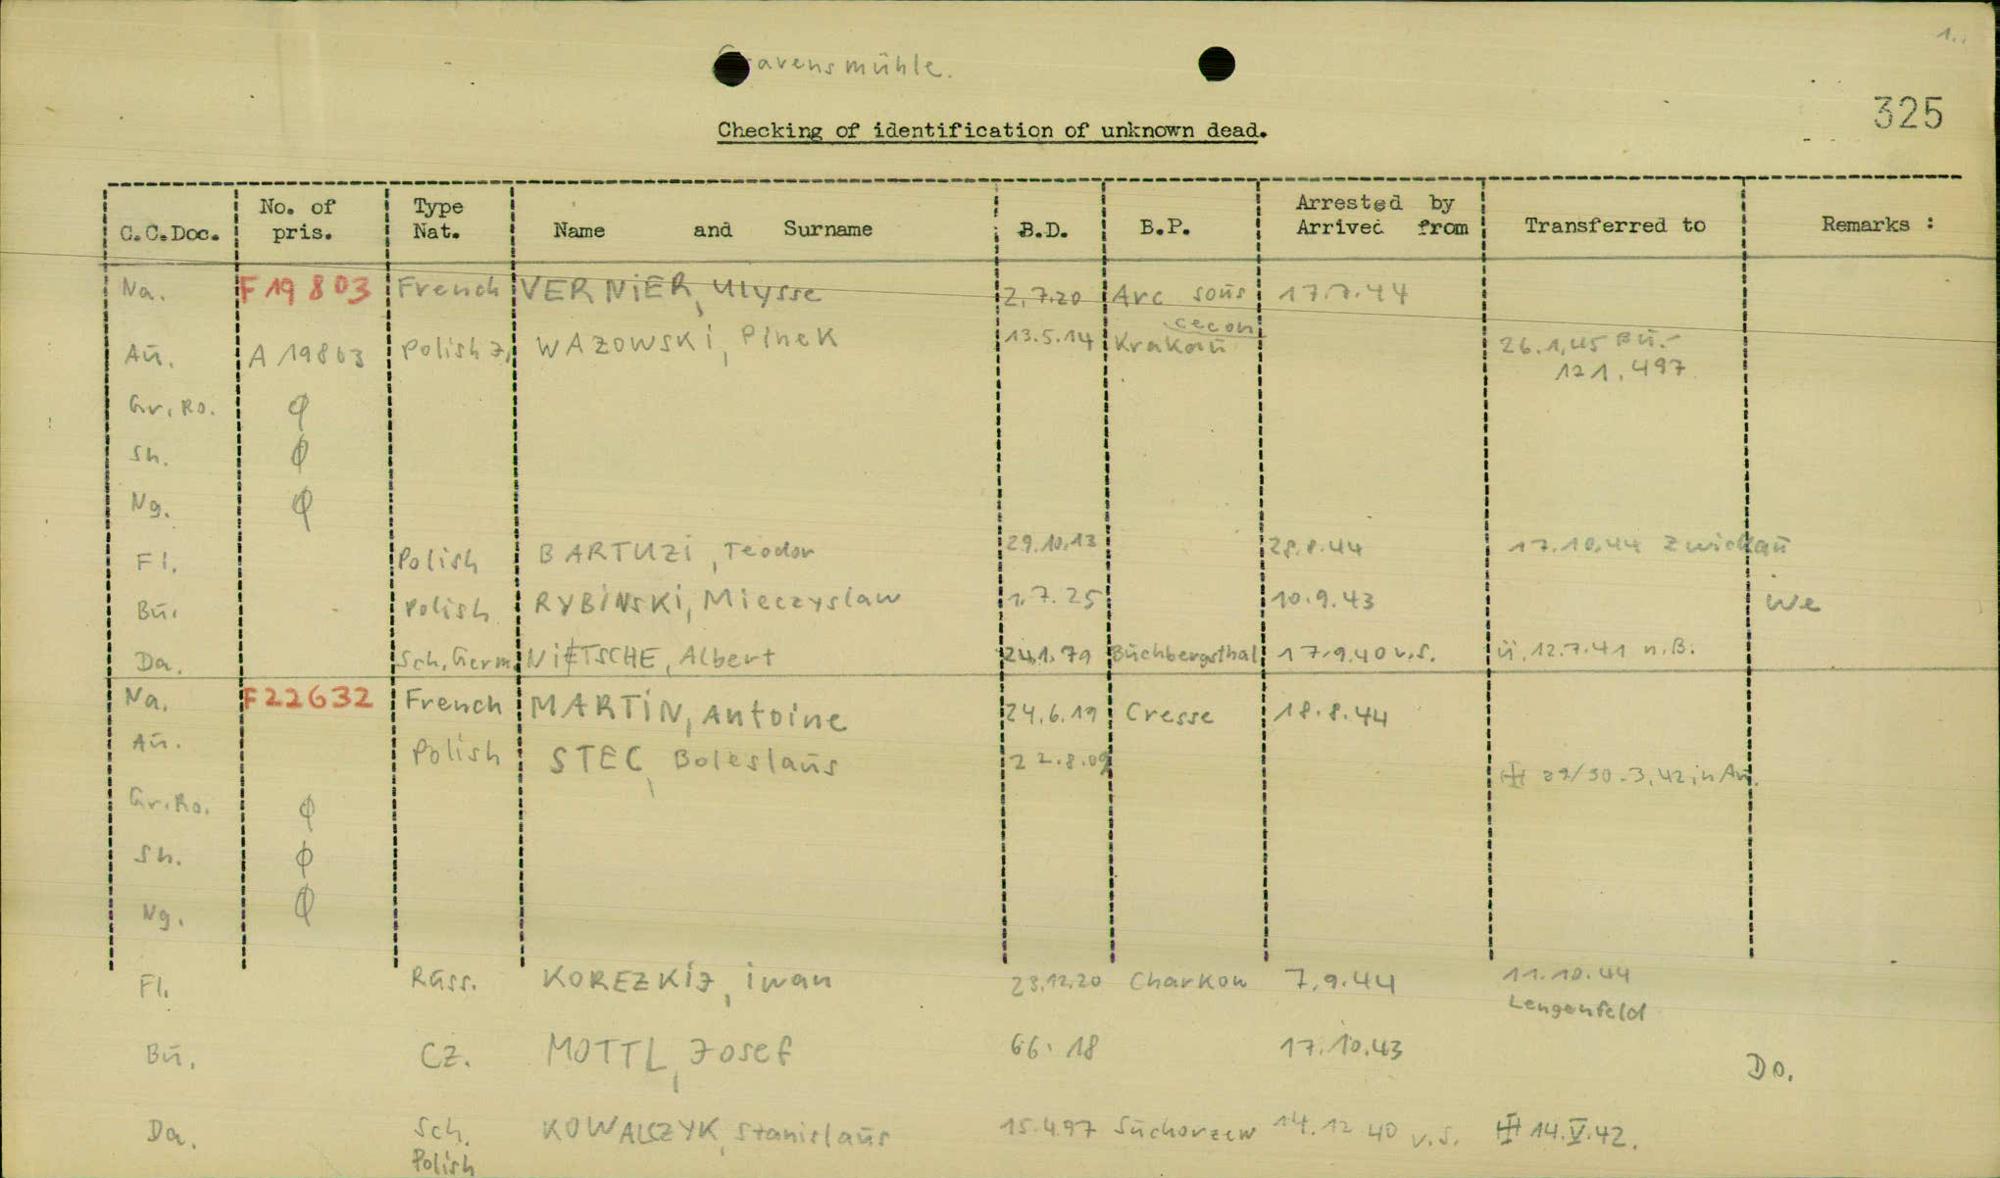 1.
Gravensmühle.
325
Checking of identification of unknown dead.
C.C.Doc. No. of pris. Type Nat. Name and Surname B.D. B.P. Arrested by Arrived from Transferred to Remarks :
Na. F 19803 French VERNiER, Ulysse 2.7.20 Arc sous cecon 17.7.44
Aŭ. A 19803 Polish J. WAZOWSKi, Pinek 13.5.14 Krakaŭ 26.1.45 Bŭ.- 121.497
Gr.Ro. φ
Sh. φ
Ng. φ
Fl. Polish BARTUZi, Teodor 29.10.13 28.8.44 17.10.44 Zwickaŭ
Bŭ. Polish RYBiNSKi, Mieczyslaw 1.7.25 10.9.43 We
Da. Sch. Germ. NiETSCHE, Albert 24.1.79 Bŭchbergsthal 17.9.40 v.S. ü. 12.7.41 n.B.
Na. F 22632 French MARTiN, Antoine 24.6.19 Cresse 18.8.44
Aŭ. Polish STEC, Boleslaŭs 22.8.09 29/30.3.42 in Aŭ.
Gr.Ro. φ
Sh. φ
Ng. φ
Fl. Rŭss. KOREZKiJ, iwan 23.12.20 Charkow 7.9.44 11.10.44 Lengenfeld
Bŭ. Cz. MOTTL, Josef 6.6.18 17.10.43 Do.
Da. Sch. Polish KOWALCZYK, Stanislaŭs 15.4.97 Sŭchorzew 14.12.40 v.S. 14.V.42.